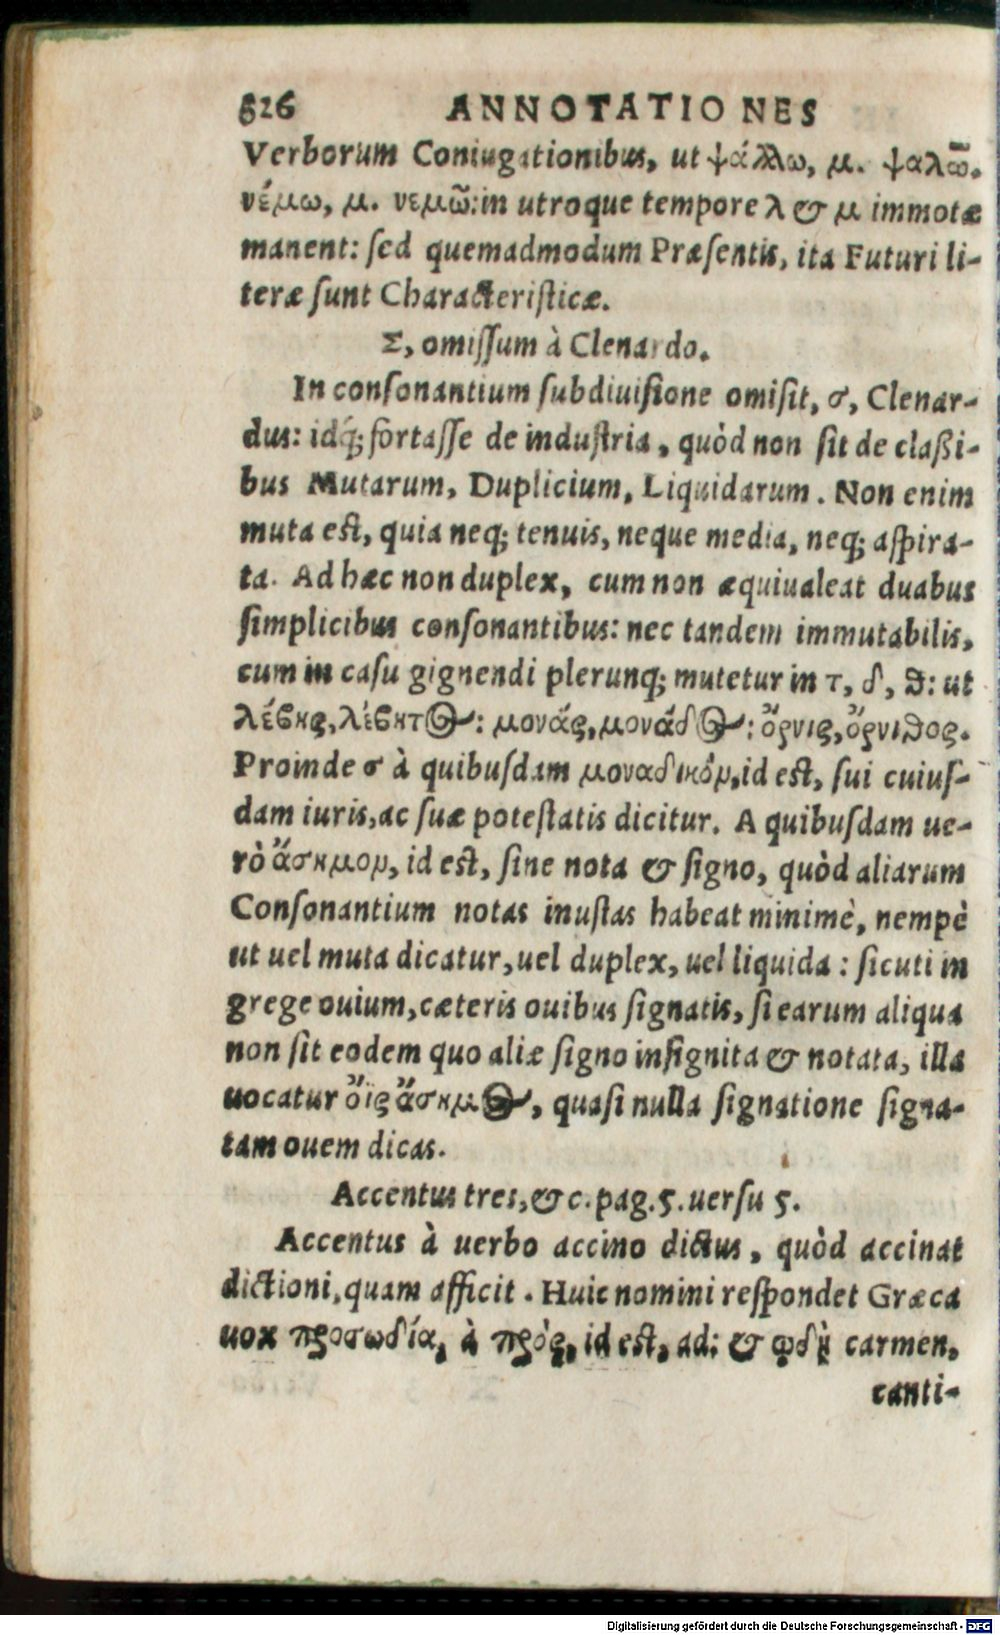 626 ANNOTATIONES
Verborum Coniugationibus, ut ψάλλω, μ. ψαλῶ.
νέμω, μ. νεμῶ: in utroque tempore λ & μ immotæ
manent: ſed quemadmodum Præſentis, ita Futuri li-
teræ ſunt Characteriſticæ.
Σ, omiſſum à Clenardo.
In conſonantium ſubdiuiſione omiſit, σ, Clenar-
dus: idq́; fortaſſe de induſtria, quòd non ſit de claßi-
bus Mutarum, Duplicium, Liquidarum. Non enim
muta eſt, quia neq; tenuis, neque media, neq; aſpira-
ta. Ad hæc non duplex, cum non æquiualeat duabus
ſimplicibus conſonantibus: nec tandem immutabilis,
cum in caſu gignendi plerunq; mutetur in τ, δ, ϑ: ut
λέβης, λέβητος: μονάς, μονάδος: ὄρνις, ὄρνιϑος.
Proinde σ à quibuſdam μοναδικόν, id eſt, ſui cuiuſ-
dam iuris, ac ſuæ poteſtatis dicitur. A quibuſdam ue-
rò ἄσημον, id eſt, ſine nota & ſigno, quòd aliarum
Conſonantium notas inuſtas habeat minimè, nempè
ut uel muta dicatur, uel duplex, uel liquida: ſicuti in
grege ouium, cæteris ouibus ſignatis, ſi earum aliqua
non ſit eodem quo aliæ ſigno inſignita & notata, illa
uocatur ὄϊς ἄσημος, quaſi nulla ſignatione ſigna-
tam ouem dicas.
Accentus tres, & c. pag. 5. uerſu 5.
Accentus à uerbo accino dictus, quòd accinat
dictioni, quam afficit. Huic nomini reſpondet Græca
uox προσωδία, à πρός, id eſt, ad: & ᾠδὴ carmen,
canti-
Digitalisierung gefördert durch die Deutsche Forschungsgemeinschaft - DFG